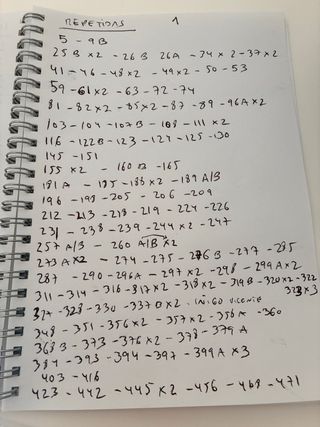 REPETIDAS 1
5 - 9B
25B x2 - 26B 26A - 34 x2 - 37 x2
41 - 46 - 48 x2 - 49 x2 - 50 - 53
59 - 61 x2 - 63 - 72 - 74
81 - 82 x2 - 85 x2 - 87 - 89 - 96A x2
103 - 104 - 107B - 108 - 111 x2
116 - 122B - 123 - 124 - 125 - 130
145 - 151
155 x2 - 160B - 165
181A - 185 - 188 x2 - 189 A/B
196 - 198 - 205 - 206 - 209
212 - 213 - 218 - 219 - 224 - 226
231 - 238 - 239 - 244 x2 - 247
257 A/B - 260 A/B x2
273A x2 - 274 - 275 - 276B - 277 - 285
287 - 290 - 296A - 297 x2 - 298 - 299A x2
311 - 314 - 316 - 317 x2 - 318 x2 - 319B - 320 x2 - 322
323 x3
324 - 328 - 330 - 337B x2 - IÑIGO VICENTE
348 - 351 - 356 x2 - 357 x2 - 358A - 360
368B - 373 - 376 x2 - 378 - 379A
384 - 393 - 394 - 397 - 399A x3
403 - 416
423 - 442 - 445 x2 - 456 - 468 - 471